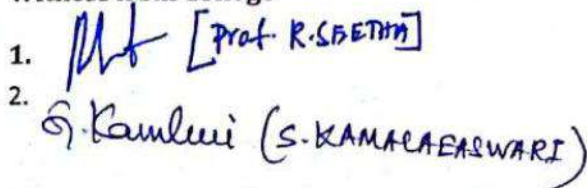 1. [Prof. R. SEETHA]
2.
G. Kamleui (S. KAMALAEASWARI)